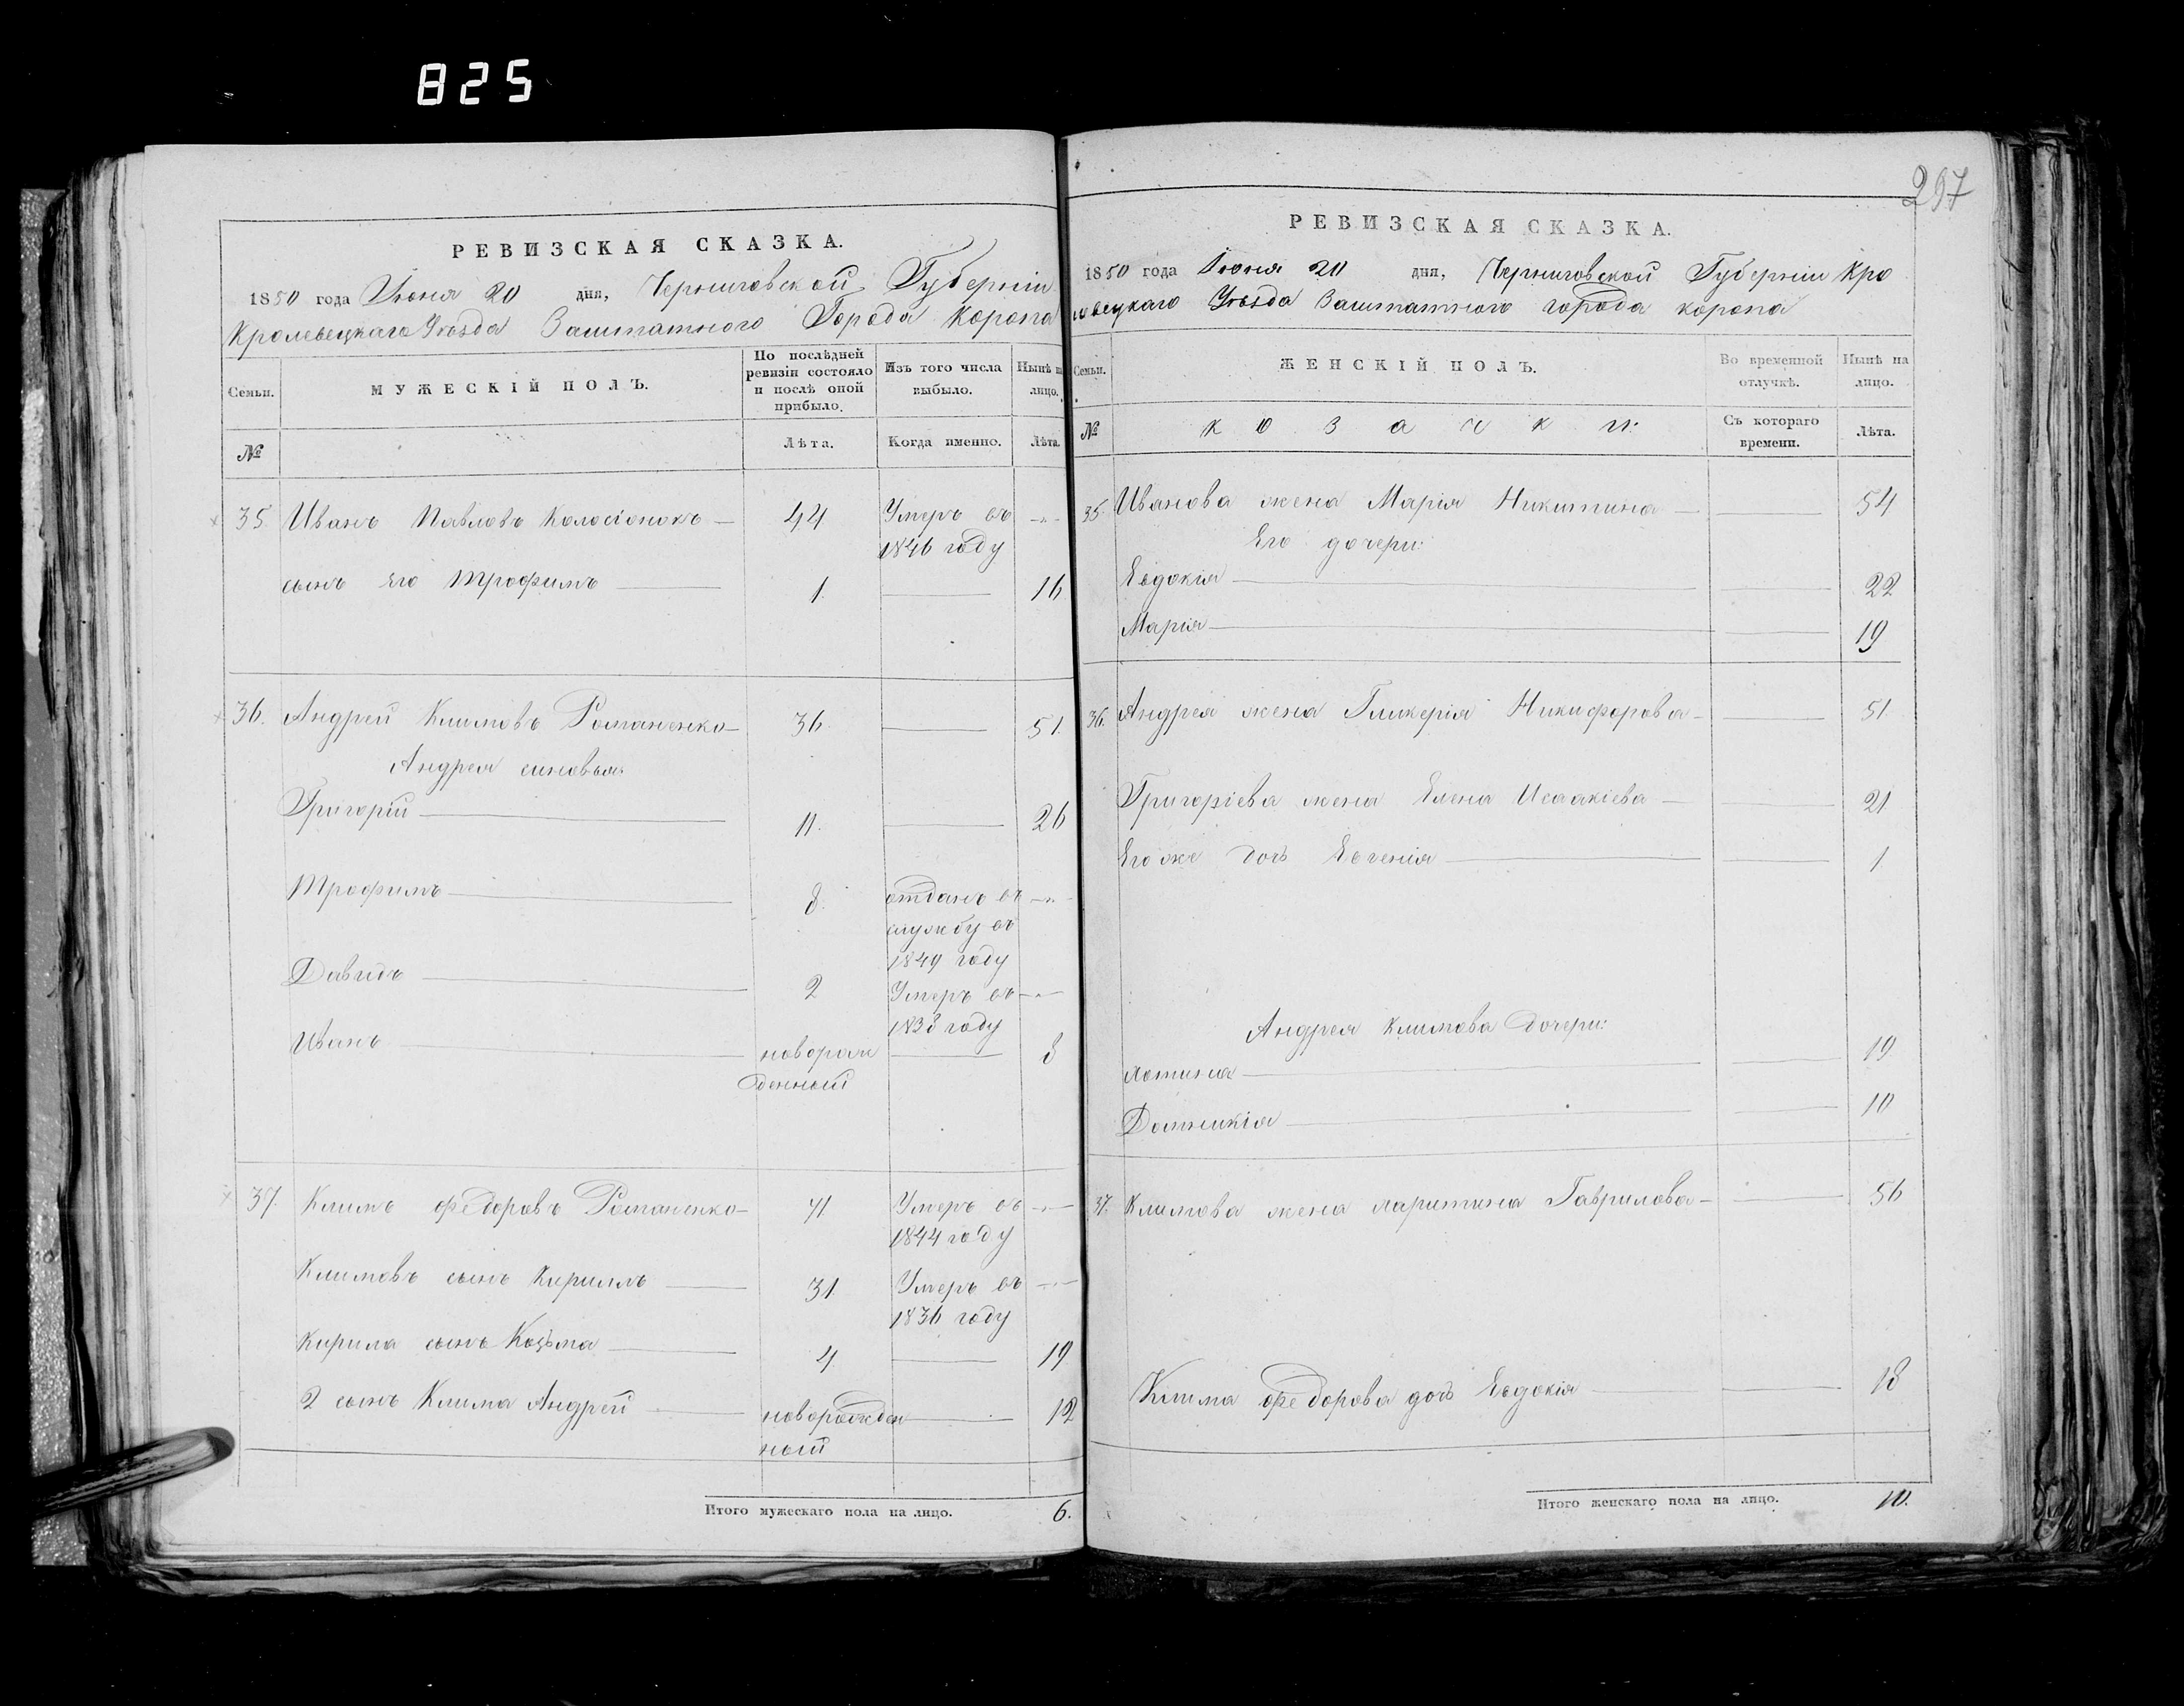 825
РЕВИЗСКАЯ СКАЗКА.
1850 года Июня 20 дня, Черниговской Губерніи
Кролевецкаго Уѣзда Заштатного Города Коропа
Семьи.
МУЖЕСКІЙ ПОЛЪ.
По послѣдней ревизіи состояло и послѣ оной прибыло.
Изъ того числа выбыло.
Нынѣ на лицо.
№
Лѣта.
Когда именно.
Лѣта.
35 Иванъ Павловъ — 44 Умеръ въ
1846 году
сынъ его Трофимъ 1. 16
36. Андрей Климовъ Романенко 36. 51.
Андрея синовья
Григорій 11. 26
Трофимъ 8. отданъ въ
службу въ
1849 году
Давидъ 2 Умеръ въ
1838 году
Иванъ новорож 8
денный
37. Климъ Федоровъ Романенко 71 Умеръ въ
1844 году
Климовъ сынъ Кирилъ 31 Умеръ въ
1836 году
Кирила сынъ Козьма 4 19
2 сынъ Клима Андрей новорожден 12
ный
Итого мужескаго пола на лицо. 6.
297
РЕВИЗСКАЯ СКАЗКА.
1850 года Іюня 20 дня, Черниговской Губерніи Кро
левецкаго Уѣзда Заштатного города коропа
Семьи.
ЖЕНСКІЙ ПОЛЪ.
Во временной отлучкѣ.
Нынѣ на лицо.
№
козачки:
Съ котораго времени.
Лѣта.
35. Иванова жена Марія Никитина 54
Его дочери:
Евдокія 22
Марія 19
36. Андрея жена Гликерія Никифорова 51
Григоріева жена Елена Исаакіева 21
Его же дочь Евгенія 1
Андрея Климова дочери:
19
Домникія 10
37. Климова жена Гаврилова 56
Клима Федорова дочь Евдокія 18
Итого женскаго пола на лицо. 10.